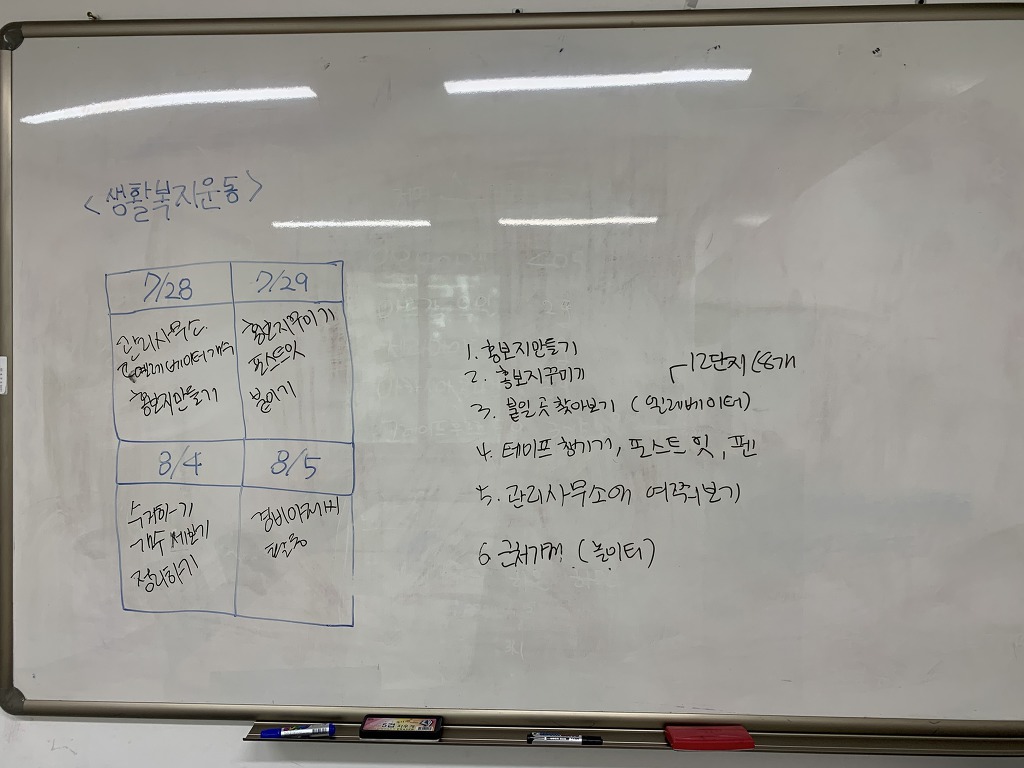 <생활복지운동>
7/28
관리사무소
엘레베이터개수
홍보지만들기
7/29
홍보지꾸미기
포스트잇
붙이기
8/4
수거하기
개수 세보기
정리하기
8/5
경비아저씨
1. 홍보지만들기
2. 홍보지꾸미기
12단지
3. 붙일 곳 찾아보기 (엘레베이터)
4. 테이프 챙기기, 포스트 잇, 펜
5. 관리사무소에 여쭤보기
6. 근처가게. (놀이터)